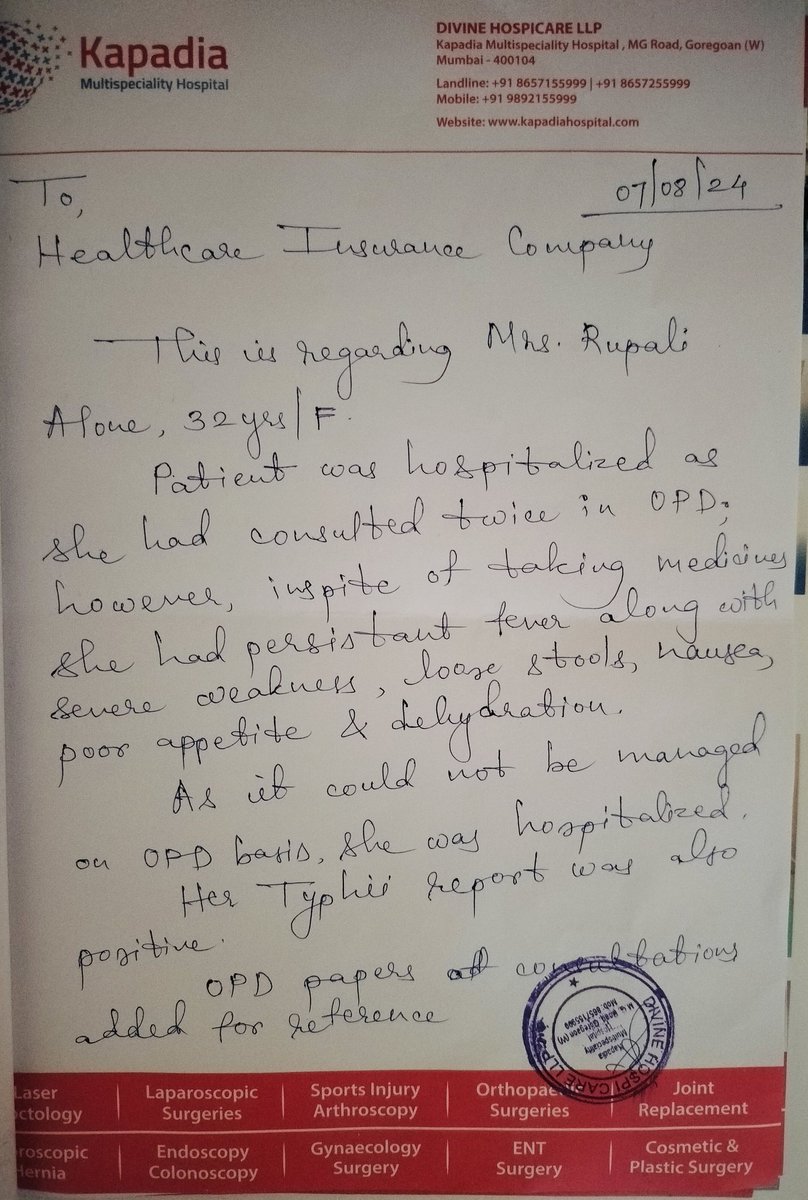 Kapadia
Multispeciality Hospital
DIVINE HOSPICARE LLP
Kapadia Multispeciality Hospital , MG Road, Goregoan (W)
Mumbai - 400104
Landline: +91 8657155999 | +91 8657255999
Mobile: +91 9892155999
Website: www.kapadiahospital.com
07/08/24
To,
Healthcare Insurance Company
This is regarding Mrs. Rupali
Alone, 32yrs/F.
Patient was hospitalized as
she had consulted twice in OPD;
however, inspite of taking medicines
she had persistant fever along with
severe weakness, loose stools, nausea,
poor appetite & dehydration.
As it could not be managed
on OPD basis, she was hospitalized.
Her Typhii report was also
positive.
OPD papers of consultations
added for reference
DIVINE HOSPICARE LLP
Kapadia
Multispeciality
Hospital
M.G. Road, Goregaon (W)
Mob: 8657155999
Laser
ctology
Laparoscopic
Surgeries
Sports Injury
Arthroscopy
Orthopae
Surgeries
Joint
Replacement
roscopic
Hernia
Endoscopy
Colonoscopy
Gynaecology
Surgery
ENT
Surgery
Cosmetic &
Plastic Surgery